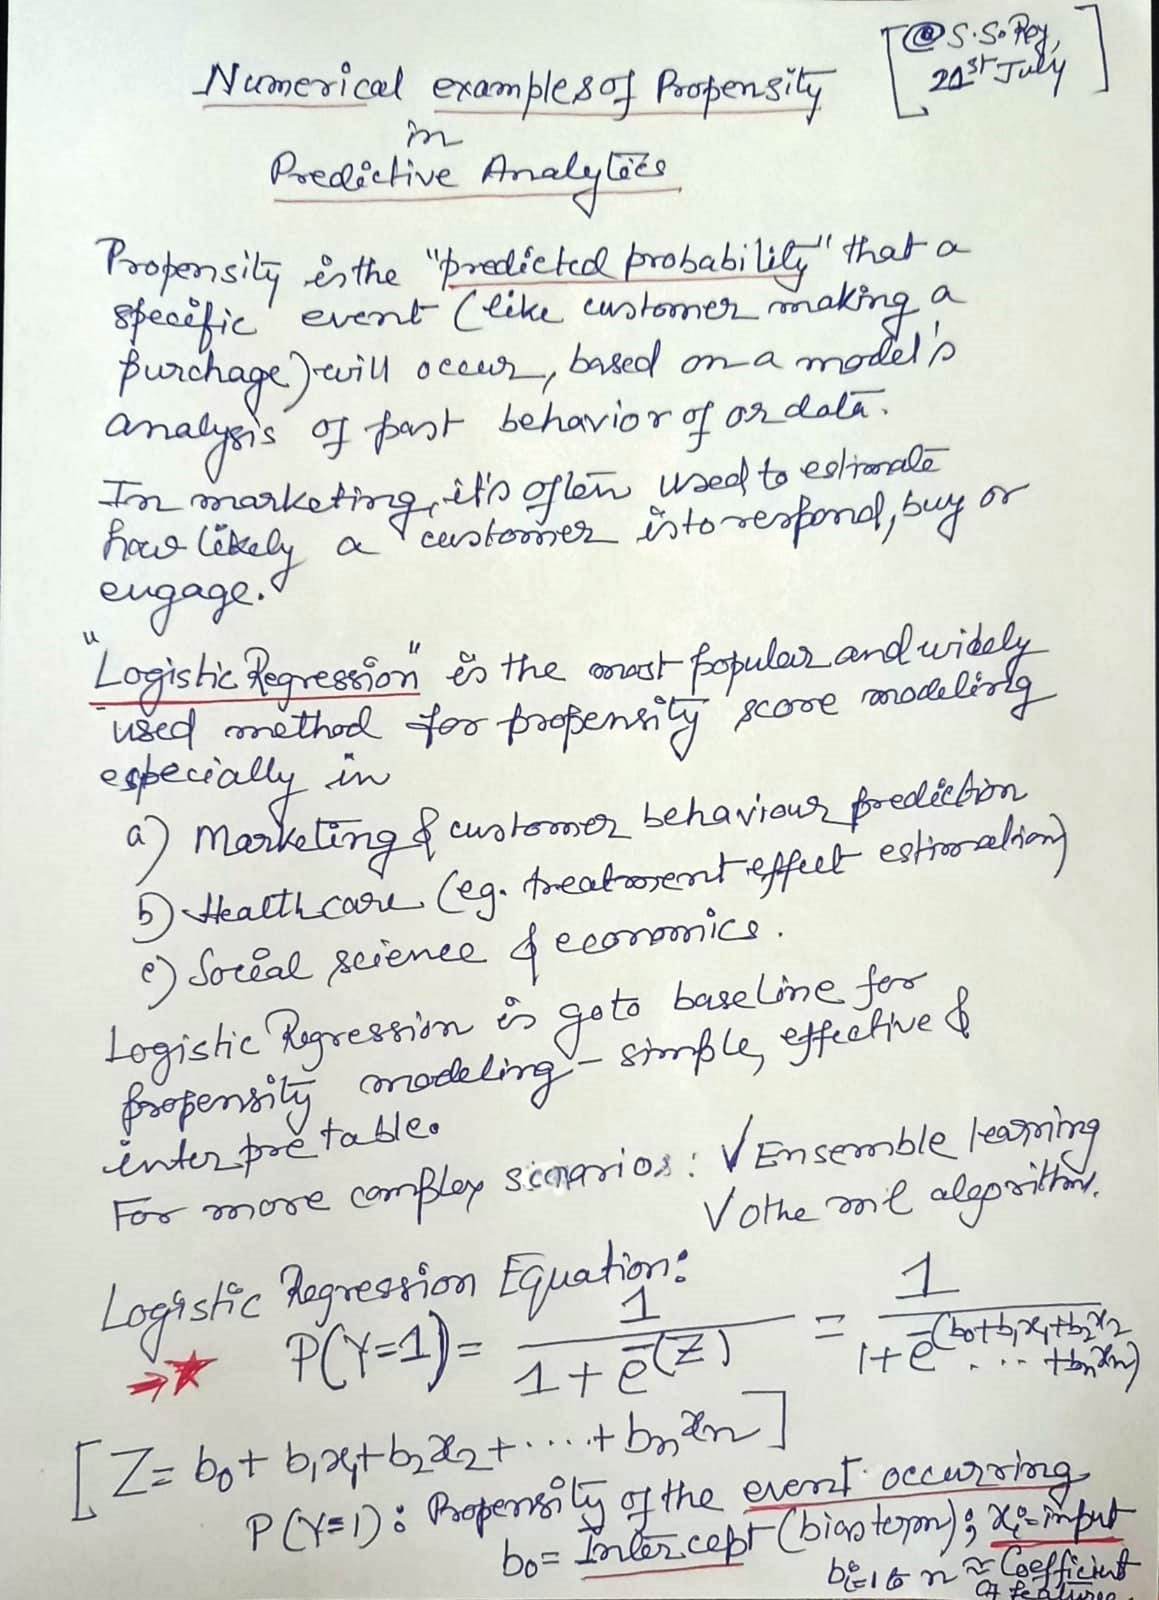 [@S.S. Roy,
21st July]
Numerical examples of Propensity
in
Predictive Analytics
Propensity is the "predicted probability" that a
specific event (like customer making a
purchage) will occur, based on a model's
analysis of past behavior of or data.
In marketing, it's often used to estimate
how likely a customer is to respond, buy or
engage.
"Logistic Regression" is the most popular and widely
used method for propensity score modeling
especially in
a) Marketing & customer behaviour prediction
b) Healthcare (eg. treatment effect estimation)
c) Social science & economics.
Logistic Regression is goto baseline for
propensity modeling - simple, effective &
interpretable.
For more complex scinarios: √ Ensemble learning
√ othe ml algorithms.
Logistic Regression Equation:
→★ P(Y=1) = 1 / (1 + e^-(Z)) = 1 / (1 + e^-(b0+b1x1+b2x2 .... +bnxn))
[Z = b0 + b1x1 + b2x2 + ..... + bnxn]
P(Y=1): Propensity of the event occurring
b0 = Intercept (bias term); xi = input
bi=1 to n ≈ Coefficient
of features.